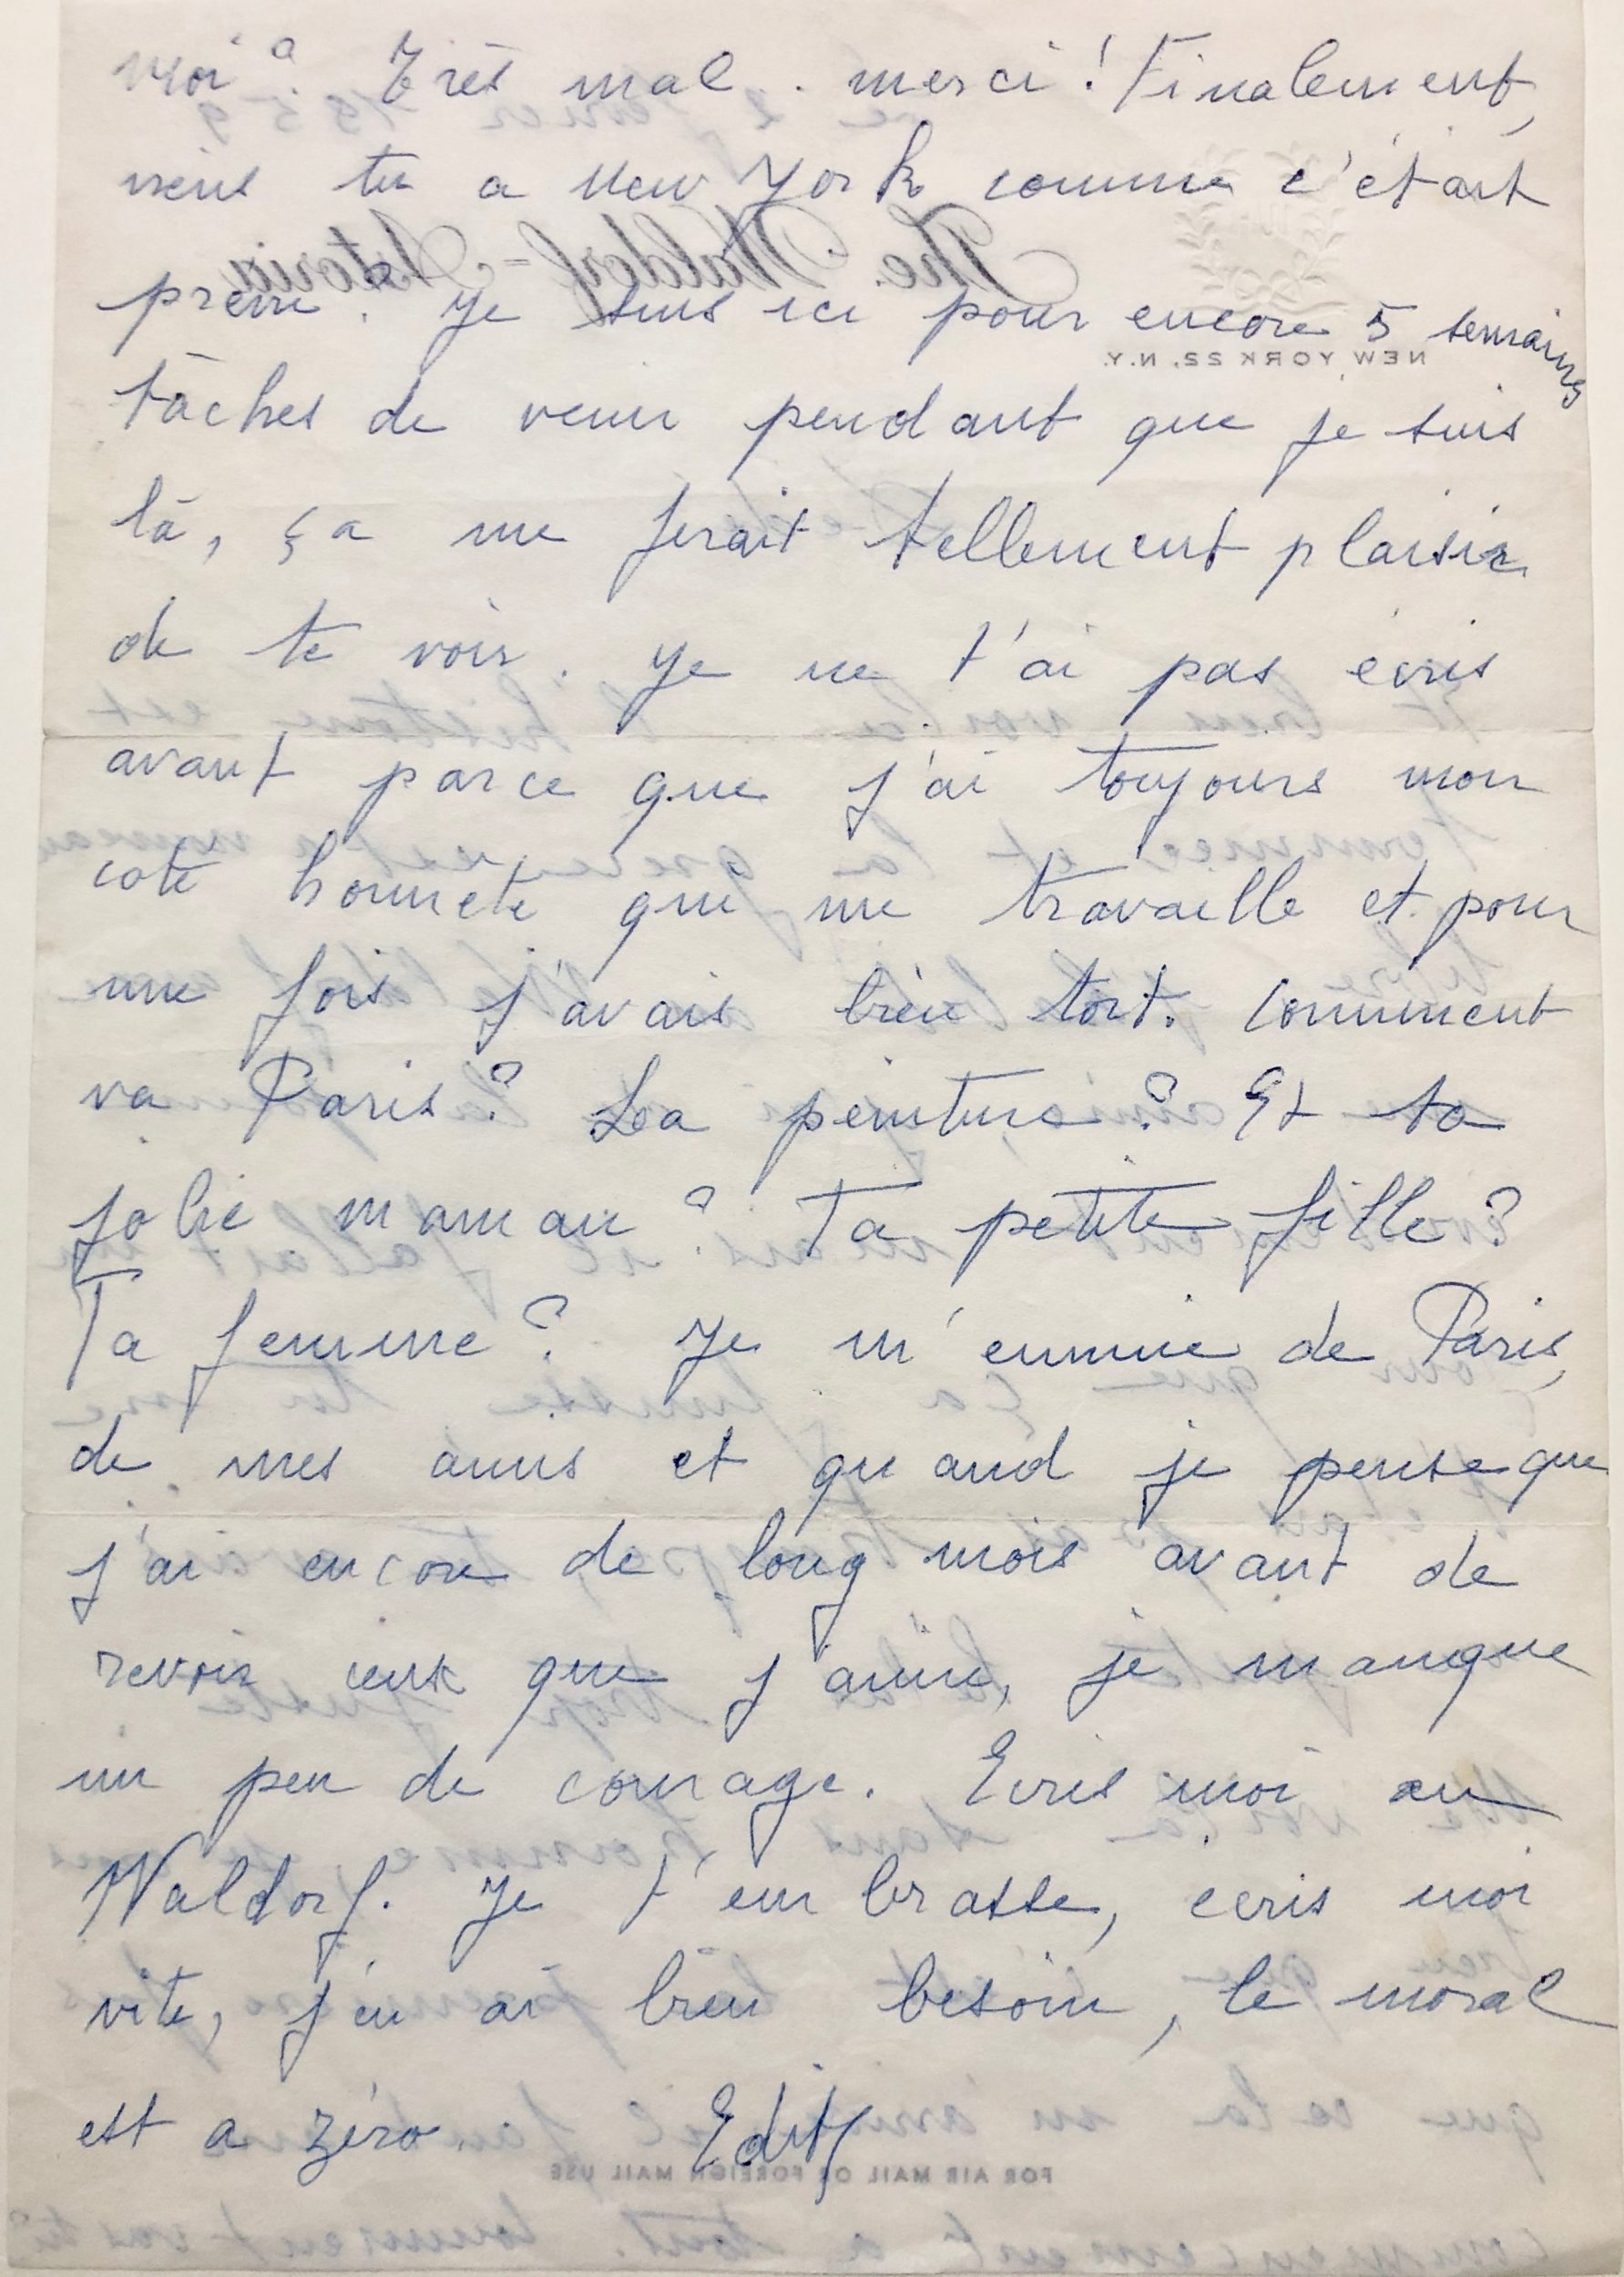 moi? Très mal. merci! Finalement,
viens tu a New York comme c'était
prévu? Je suis ici pour encore 5 semaines
tâches de venir pendant que je suis
là, ça me ferait tellement plaisir
de te voir. Je ne t'ai pas écris
avant parce que j'ai toujours mon
coté honnete qui me travaille et pour
une fois j'avais bien tort. Comment
va Paris? La peinture? Et ta
jolie maman? Ta petite fille?
Ta femme? Je m'ennuie de Paris,
de mes amis et quand je pense que
j'ai encore de long mois avant de
revoir ceux que j'aime, je manque
un peu de courage. Ecris moi au
Waldorf. Je t'embrasse, écris moi
vite, j'en ai bien besoin, le moral
est a zéro. Edith
The Waldorf-Astoria
NEW YORK 22, N.Y.
FOR AIR MAIL OR FOREIGN MAIL USE